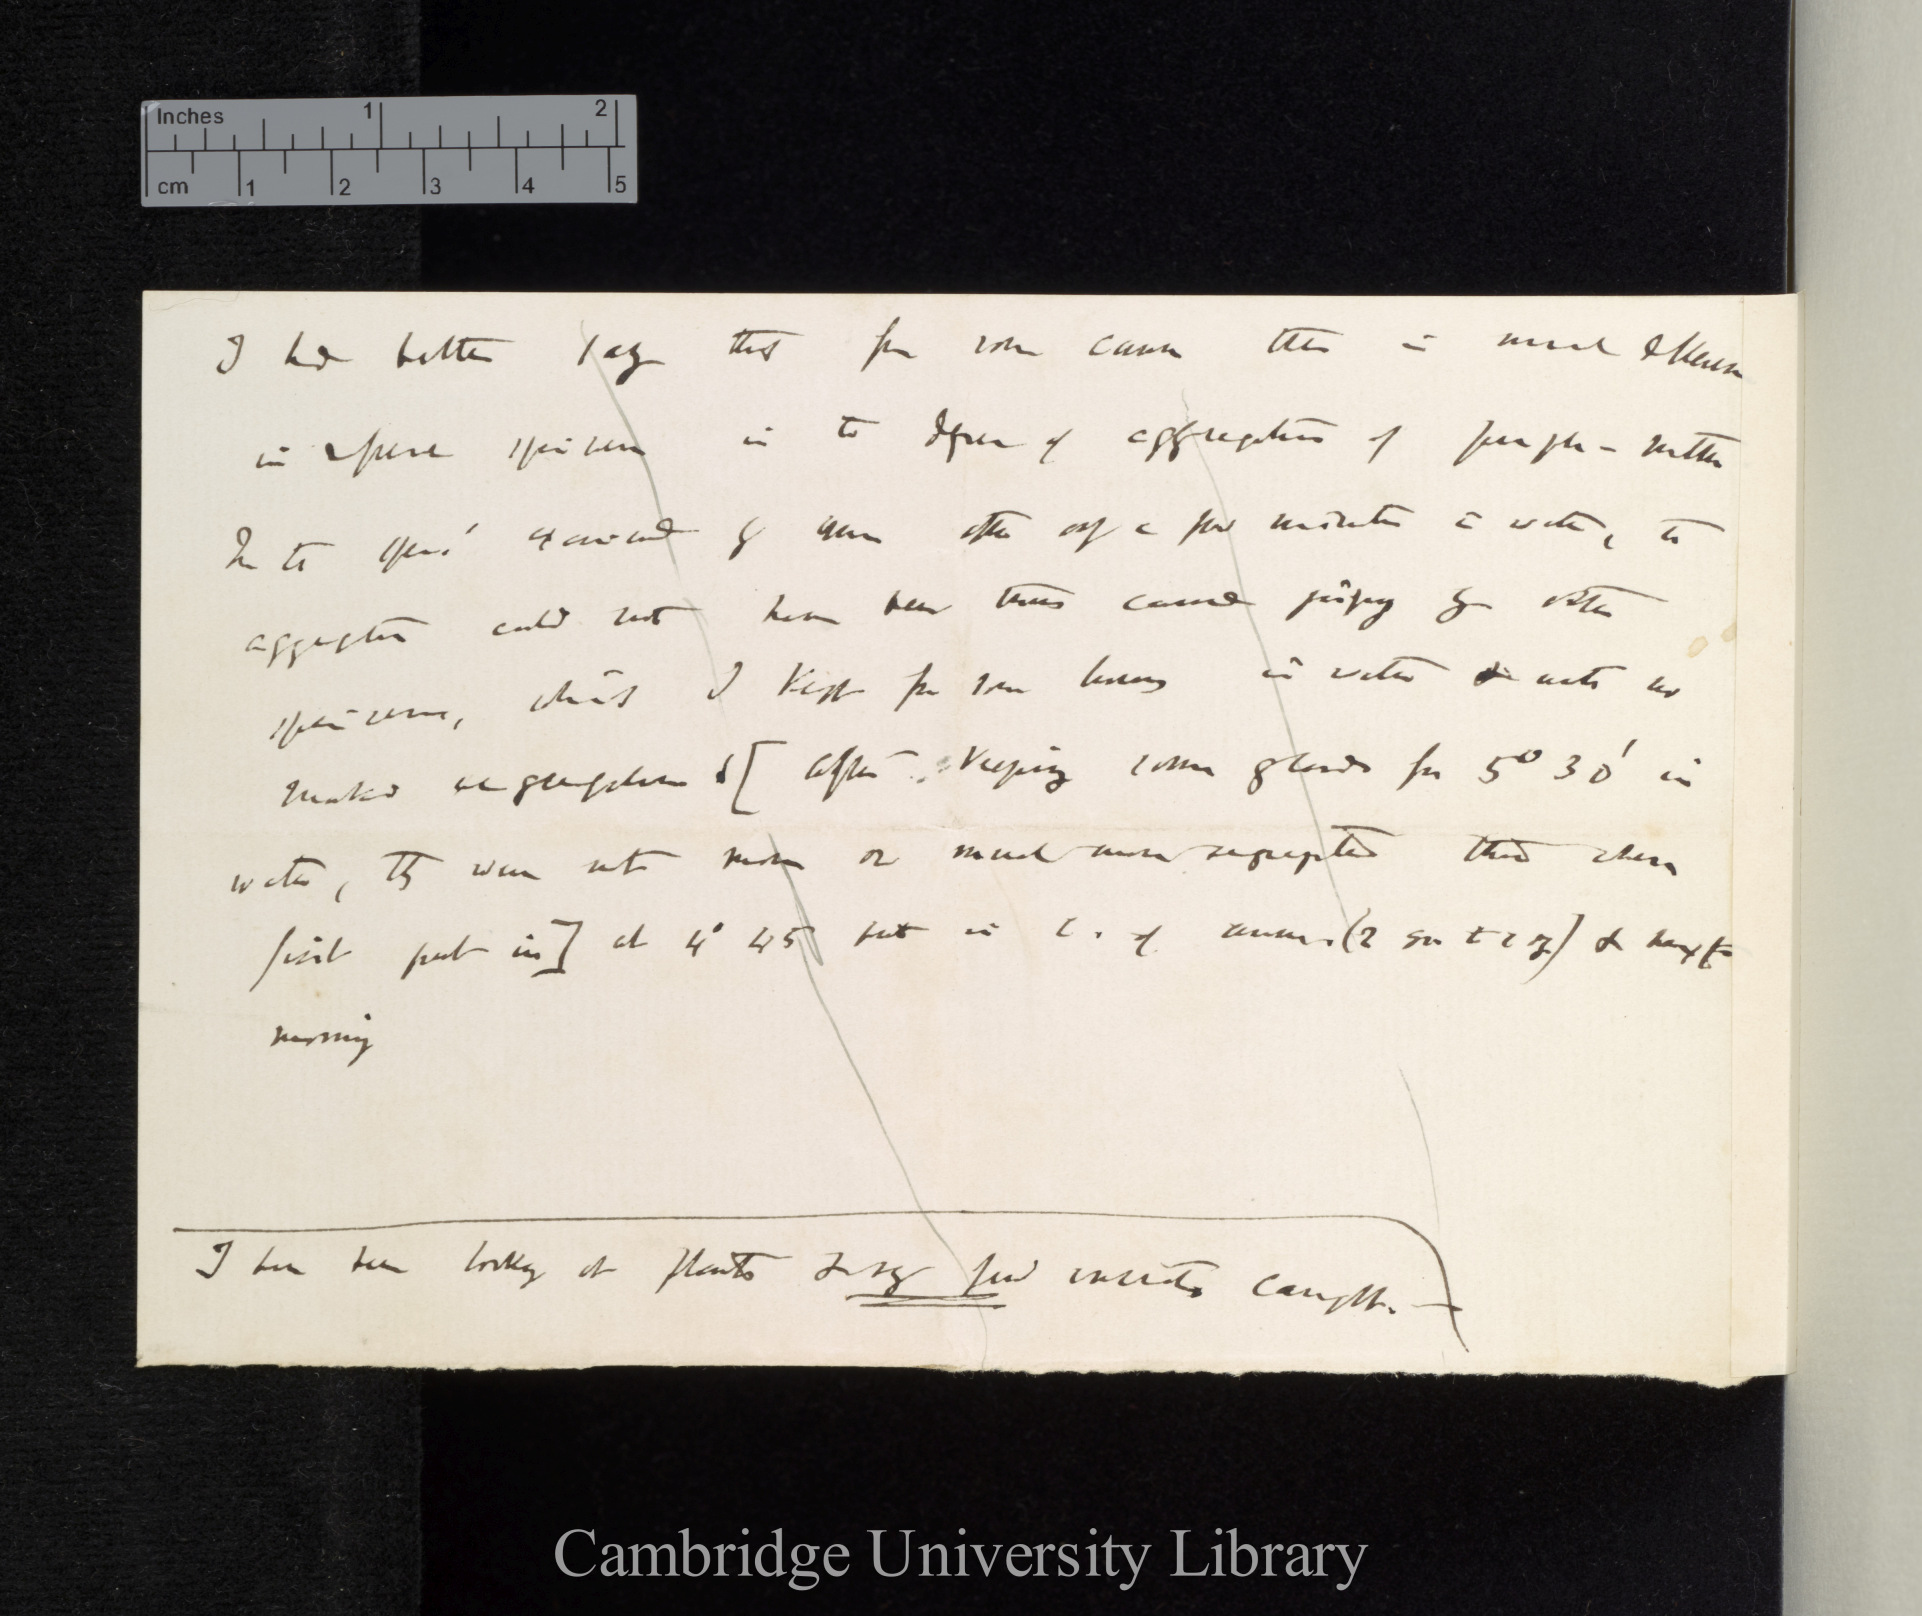 Inches 1 2
cm 1 2 3 4 5
I had better say that for some cause there is much difference
in different specimens in the degree of aggregation of purple-matter
In the spec' examined by me after only a few minutes in water, the
aggregation could not have been thus caused judging by other
specimens, which I kept for some hours in water & with no
marked aggregation & [after keeping some glands for 5° 30' in
water, they were not more or much more segregated than when
first put in] at 4° 45 put in C. of ammon. (2 gr to 1 oz) & next
morning
I have been looking at plants & very few insects caught.—
Cambridge University Library